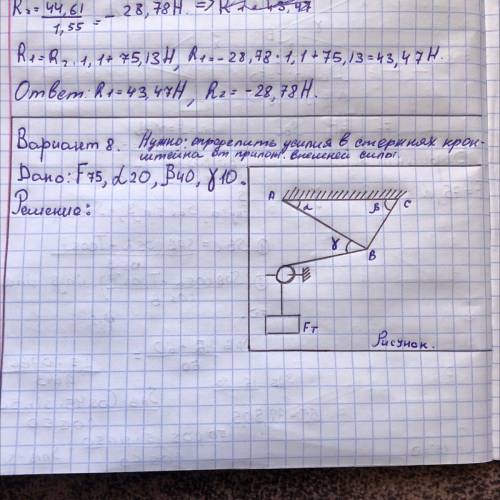 R₂ = 44,61 / 1,55 = - 28,78Н. =>
R1 = R₂ · 1,1 + 75,13Н, R1 = -28,78 · 1,1 + 75,13 = 43,47Н.
Ответ: R1 = 43,47Н, R2 = -28,78Н.
Вариант 8. Нужно: определить усилия в стержнях крон-
штейна от прилож. внешней силы.
Дано: F75, α20, β40, γ10.
Решение:
A α β C
γ B
Fт
Рисунок.